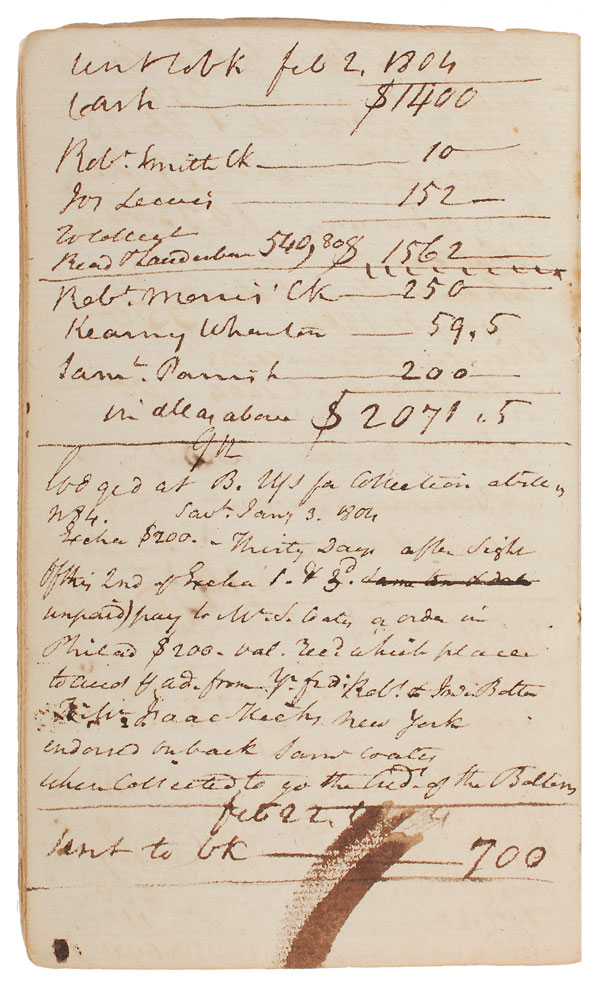 sent to bk feb 2. 1804
Cash $1400
Robt. Smith Ck 10
Jos Lewis 152
$ 1562
Recd 540,80
Robt. Morris' Ck 250
Kearny Wharton 59.5
Saml. Parrish 200
in all as above $ 2071.5
Lodged at B. US for Collection a bill
No 84. Savh. Jany 3. 1804
Excha $200. Thirty Days after Sight
of this 2nd of Excha 1. & 3d
unpaid) pay to Mr. S. Coates or order in
Philad $200. val. Recd which place
to acct & ad. from Yr. frds: Robt. & Jno Bolton
Isaac Hicks New York
endorsed on back Saml Coates
when Collected to go the Cred. of the Boltons
feb 22.
sent to bk 700